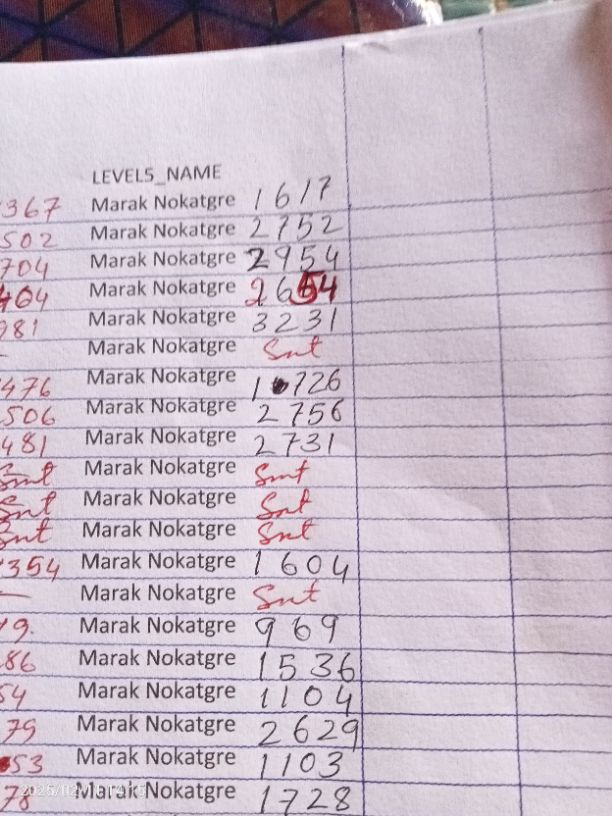 LEVEL5_NAME
367 Marak Nokatgre 1617
502 Marak Nokatgre 2752
704 Marak Nokatgre 2954
464 Marak Nokatgre 2654
981 Marak Nokatgre 3231
— Marak Nokatgre Snt
476 Marak Nokatgre 1726
506 Marak Nokatgre 2756
481 Marak Nokatgre 2731
Smt Marak Nokatgre Smt
Snt Marak Nokatgre Snt
Snt Marak Nokatgre Snt
354 Marak Nokatgre 1604
— Marak Nokatgre Snt
9. Marak Nokatgre 969
86 Marak Nokatgre 1536
54 Marak Nokatgre 1104
79 Marak Nokatgre 2629
53 Marak Nokatgre 1103
78 Marak Nokatgre 1728